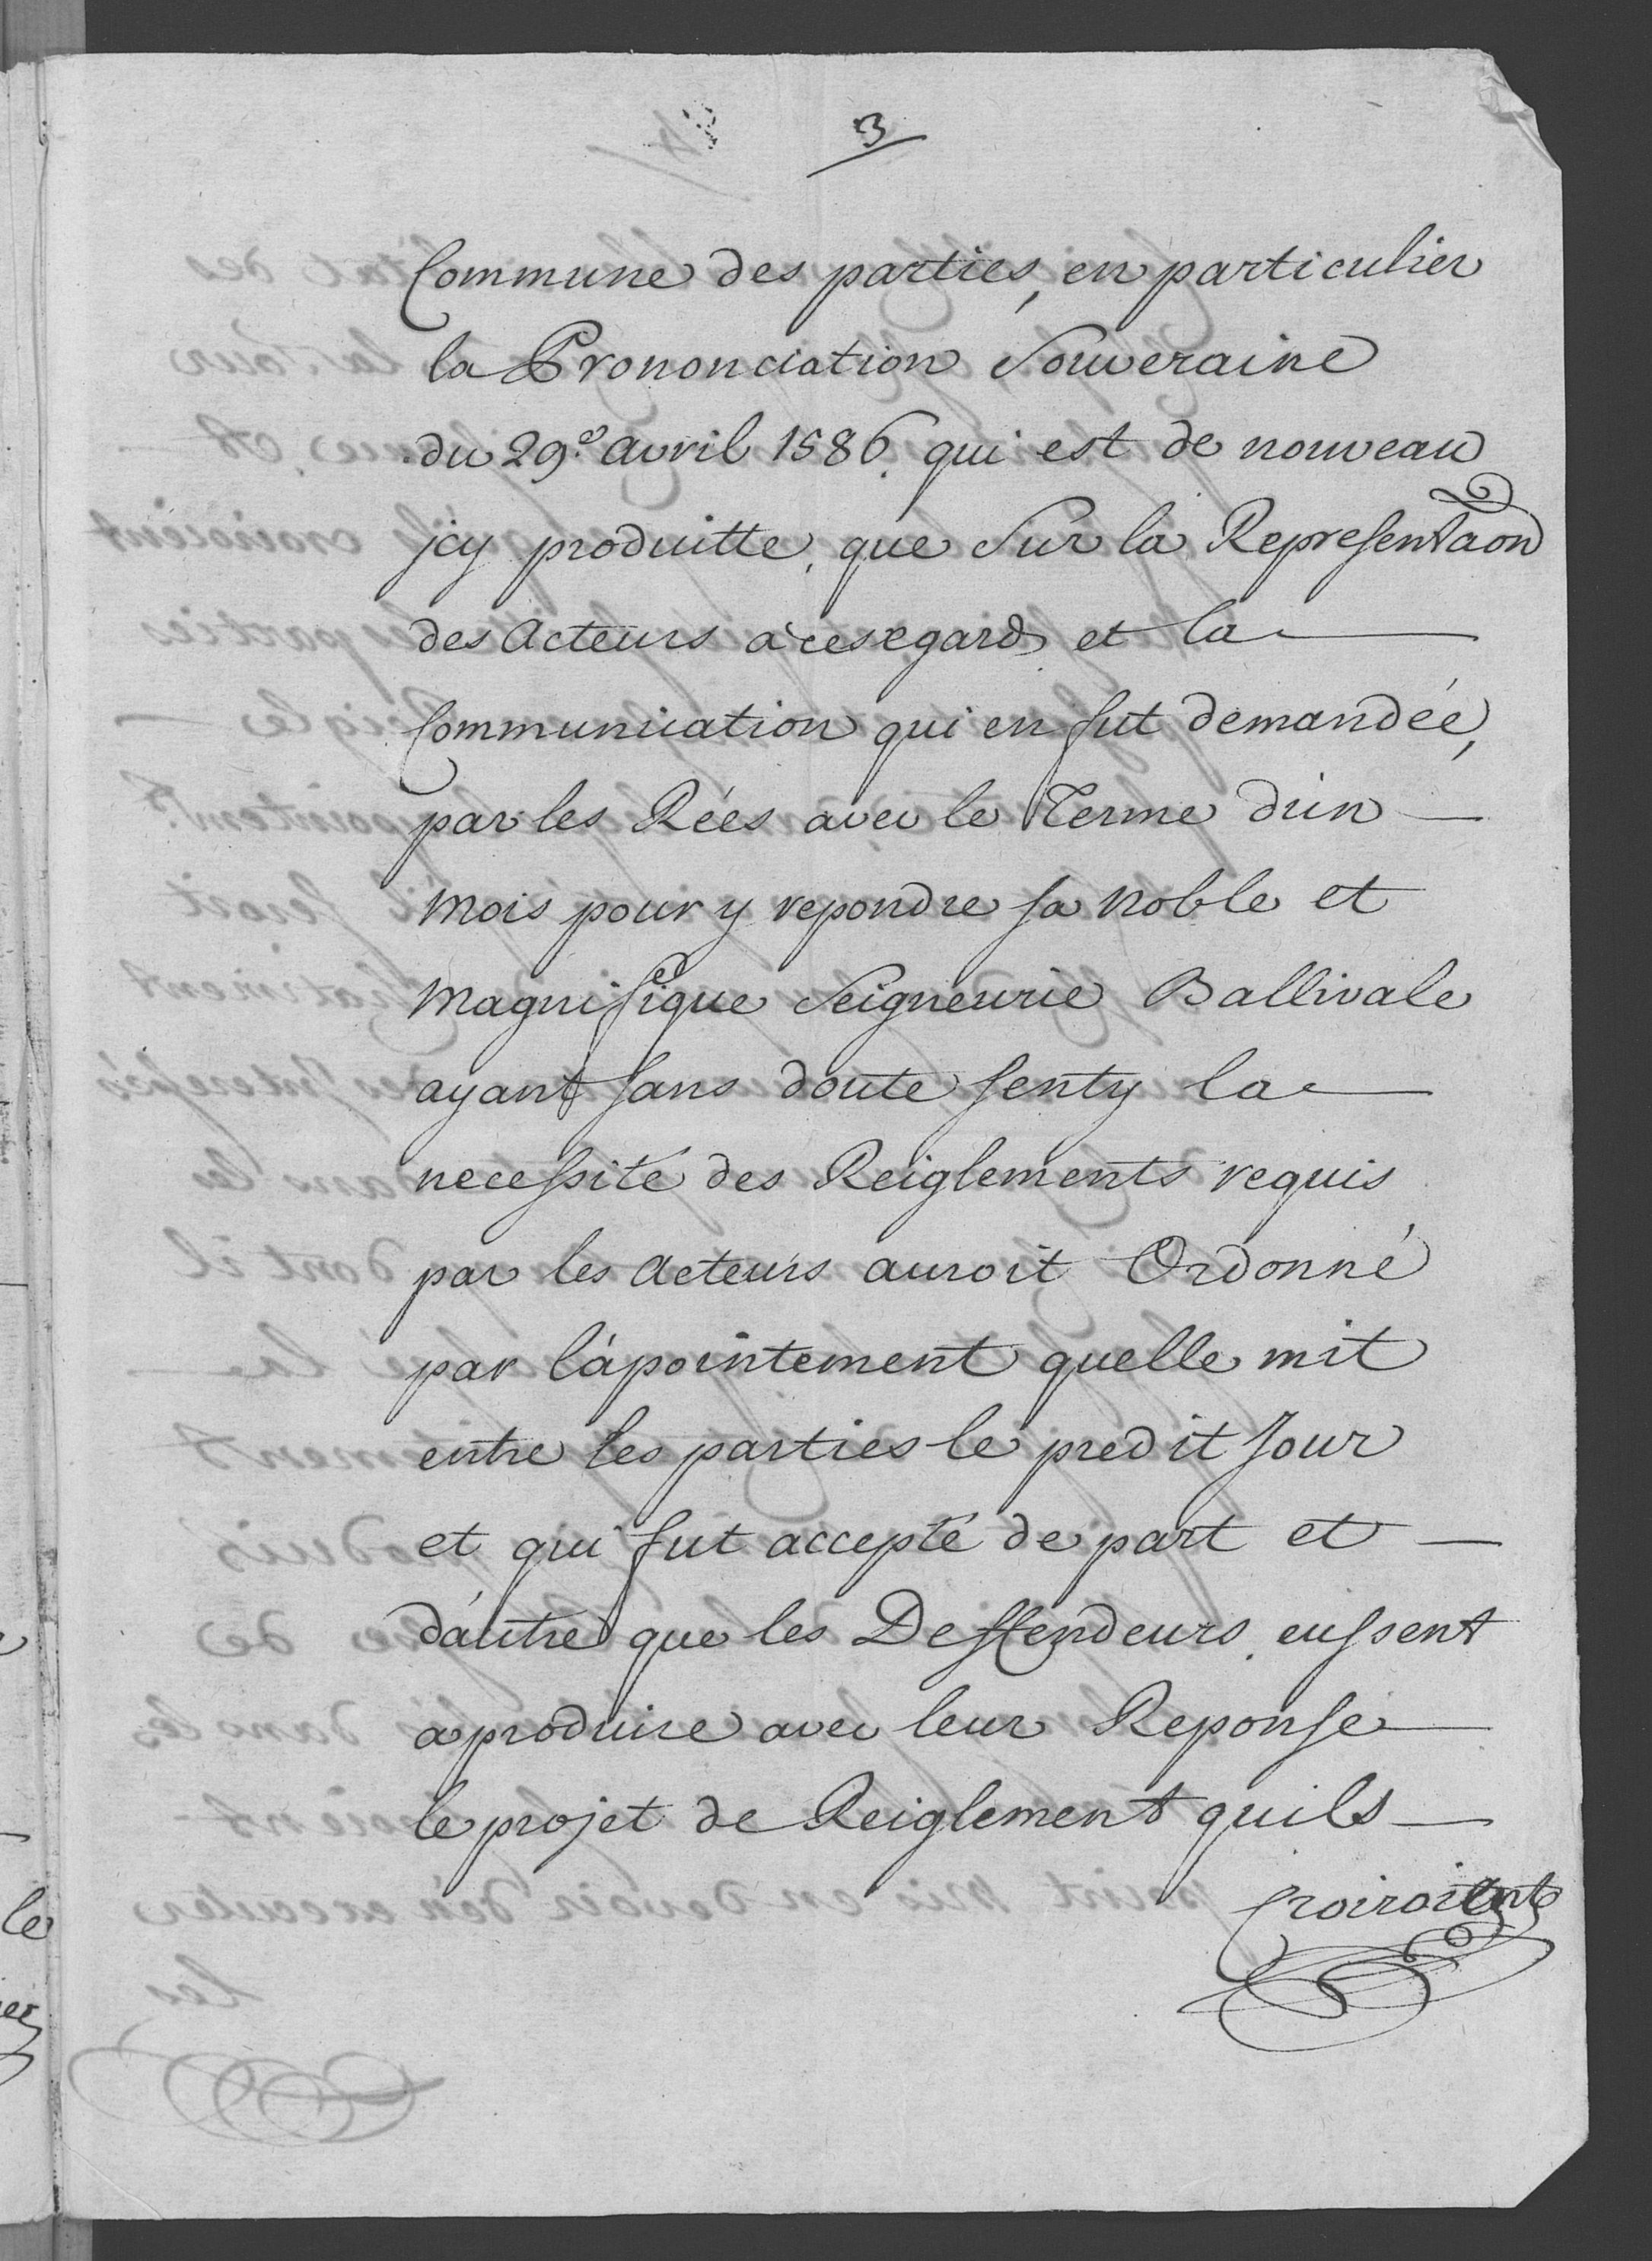 3
Commune des parties, en particulier
la Prononciation Souveraine
du 29.e avril 1586. qui est de nouveau
jcy produitte, que Sur la Representaon
des Acteurs à ces egards et la
Communication qui en fut demandée,
par les Rées avec le Terme d'un
mois pour y repondre sa noble et
magnifique Seigneurie Ballivale
ayant sans doute senty la
necessité des Reiglements requis
par les Acteurs auroit Ordonné
par l'apointement quelle mit
entre les parties le predit Jour
et qui fut accepté de part et
d'autre que les Deffendeurs eussent
a produire avec leur Reponse
le projet de Reiglement quils
croiroient